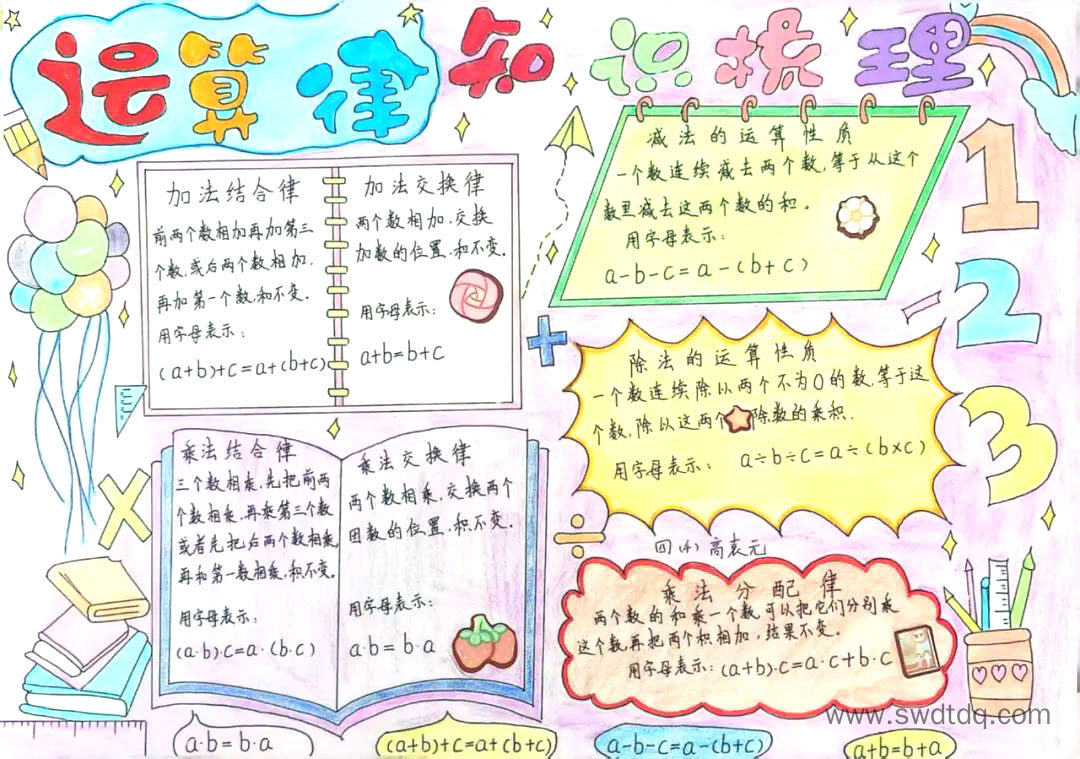 运算律知识梳理
加法结合律
前两个数相加再加第三
个数,或后两个数相加,
再加第一个数,和不变。
用字母表示:
(a+b)+c=a+(b+c)
加法交换律
两个数相加,交换
加数的位置,和不变。
用字母表示:
a+b=b+c
减法的运算性质
一个数连续减去两个数,等于从这个
数里减去这两个数的和。
用字母表示:
a-b-c=a-(b+c)
除法的运算性质
一个数连续除以两个不为0的数,等于这
个数,除以这两个除数的乘积.
用字母表示: a÷b÷c=a÷(b×c)
乘法结合律
三个数相乘,先把前两
个数相乘,再乘第三个数
或者先把后两个数相乘
再和第一数相乘,积不变。
用字母表示:
(a·b)·c=a·(b·c)
乘法交换律
两个数相乘,交换两个
因数的位置,积不变.
用字母表示:
a·b=b·a
四(4) 高表元
乘法分配律
两个数的和乘一个数,可以把它们分别乘
这个数,再把两个积相加,结果不变。
用字母表示:(a+b)·c=a·c+b·c
1
2
3
www.swdtdq.com
a·b=b·a
(a+b)+c=a+(b+c)
a-b-c=a-(b+c)
a+b=b+a